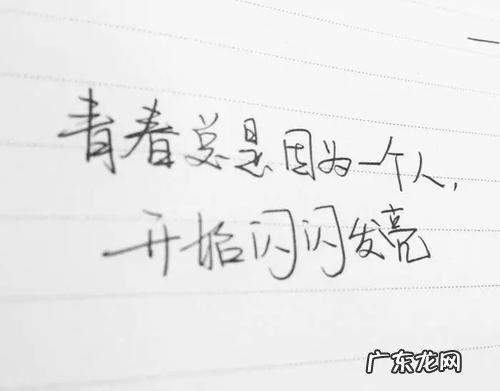 青春总是因为一个人，
开始闪闪发亮
广东龙网